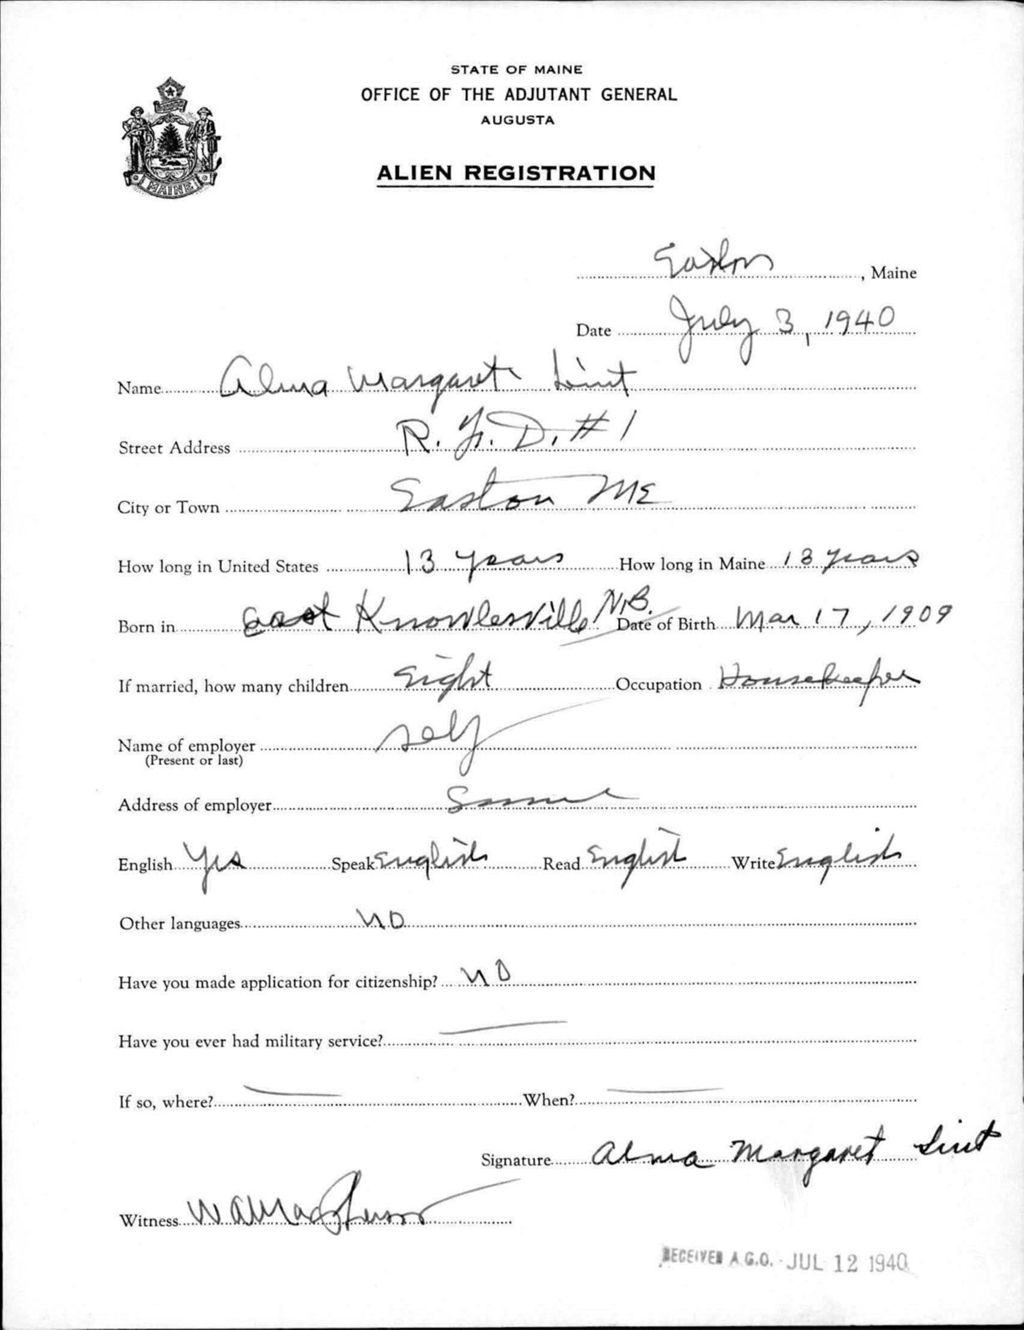 STATE OF MAINE
OFFICE OF THE ADJUTANT GENERAL
AUGUSTA
ALIEN REGISTRATION
MAINE
Easton, Maine
Date July 3, 1940
Name Alma Margaret Lint
Street Address R. F. D. #1
City or Town Easton ME
How long in United States 13 years How long in Maine 13 years
Born in East Knowlesville N.B. Date of Birth Mar 17, 1909
If married, how many children Eight Occupation Housekeeper
Name of employer self
(Present or last)
Address of employer Same
English Yes Speak English Read English Write English
Other languages no
Have you made application for citizenship? no
Have you ever had military service? —
If so, where? — When? —
Signature Alma Margaret Lint
Witness
RECEIVED A.G.O. JUL 12 1940